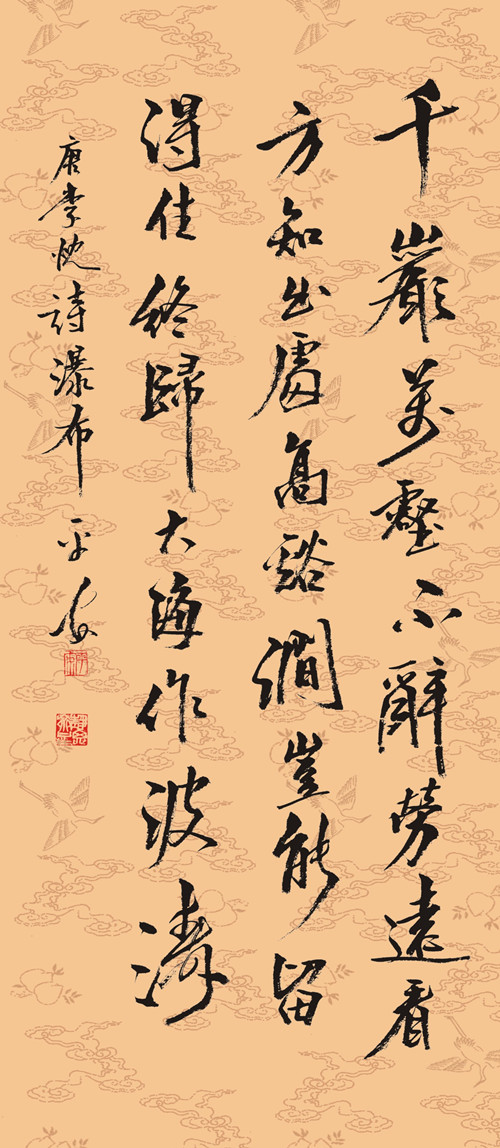 千巖萬壑不辭勞遠看
方知出處高谿澗豈能留
得住終歸大海作波濤
唐李忱詩瀑布 平安